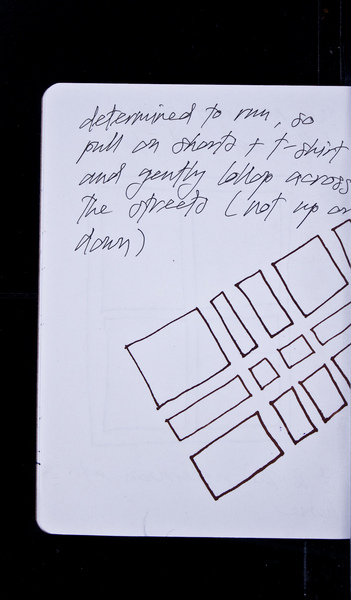 determined to run, so
pull on shorts + t-shirt
and gently lollop across
the streets (not up or
down)